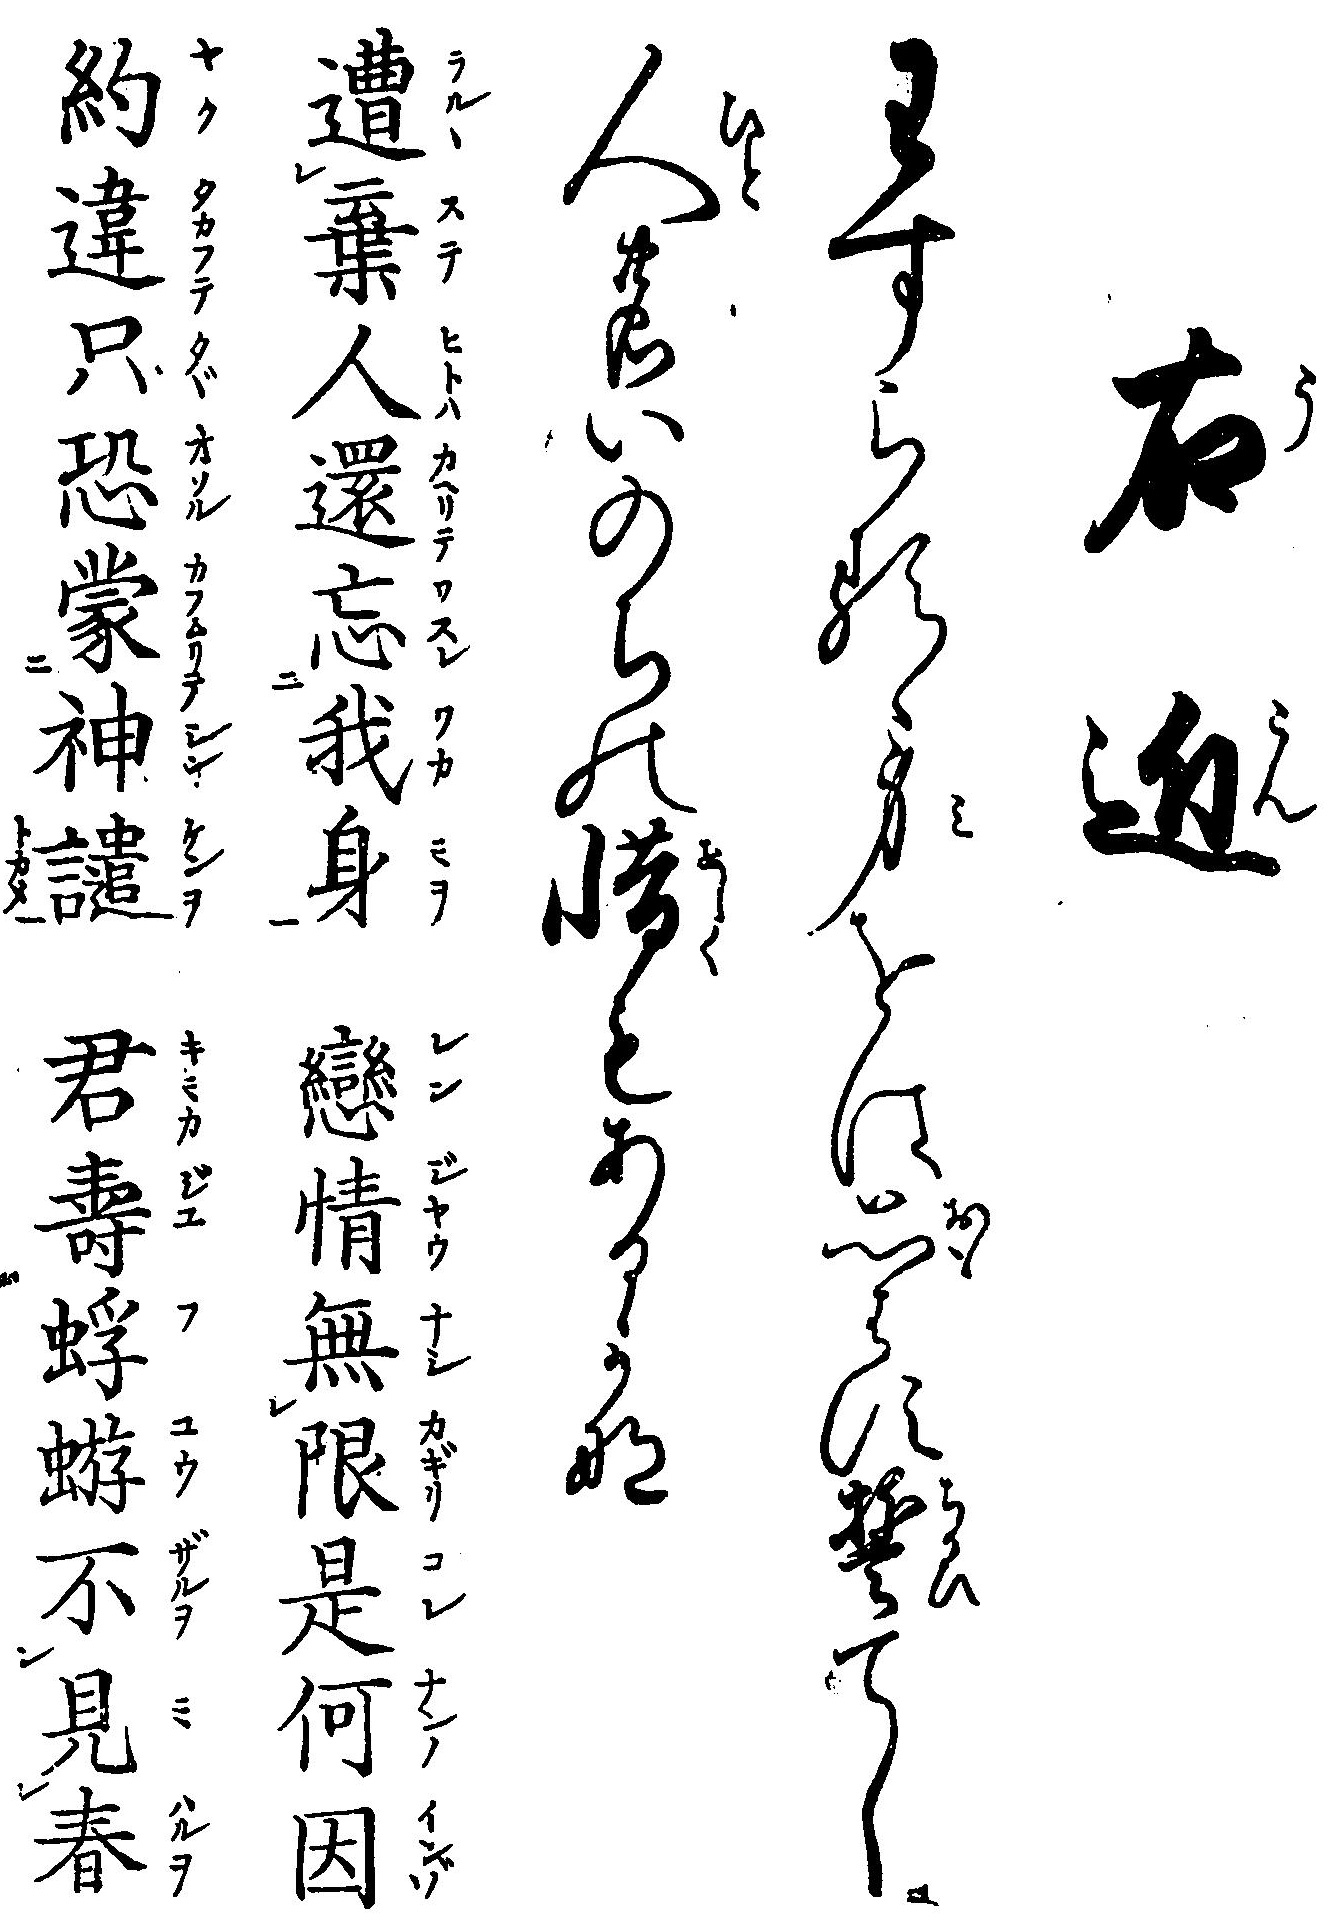 右近
わすらるゝ身をは思はす誓てし
人のいのちの惜もあるかな
遭棄人還忘我身　戀情無限是何因
約違只恐蒙神譴　君壽蜉蝣不見春